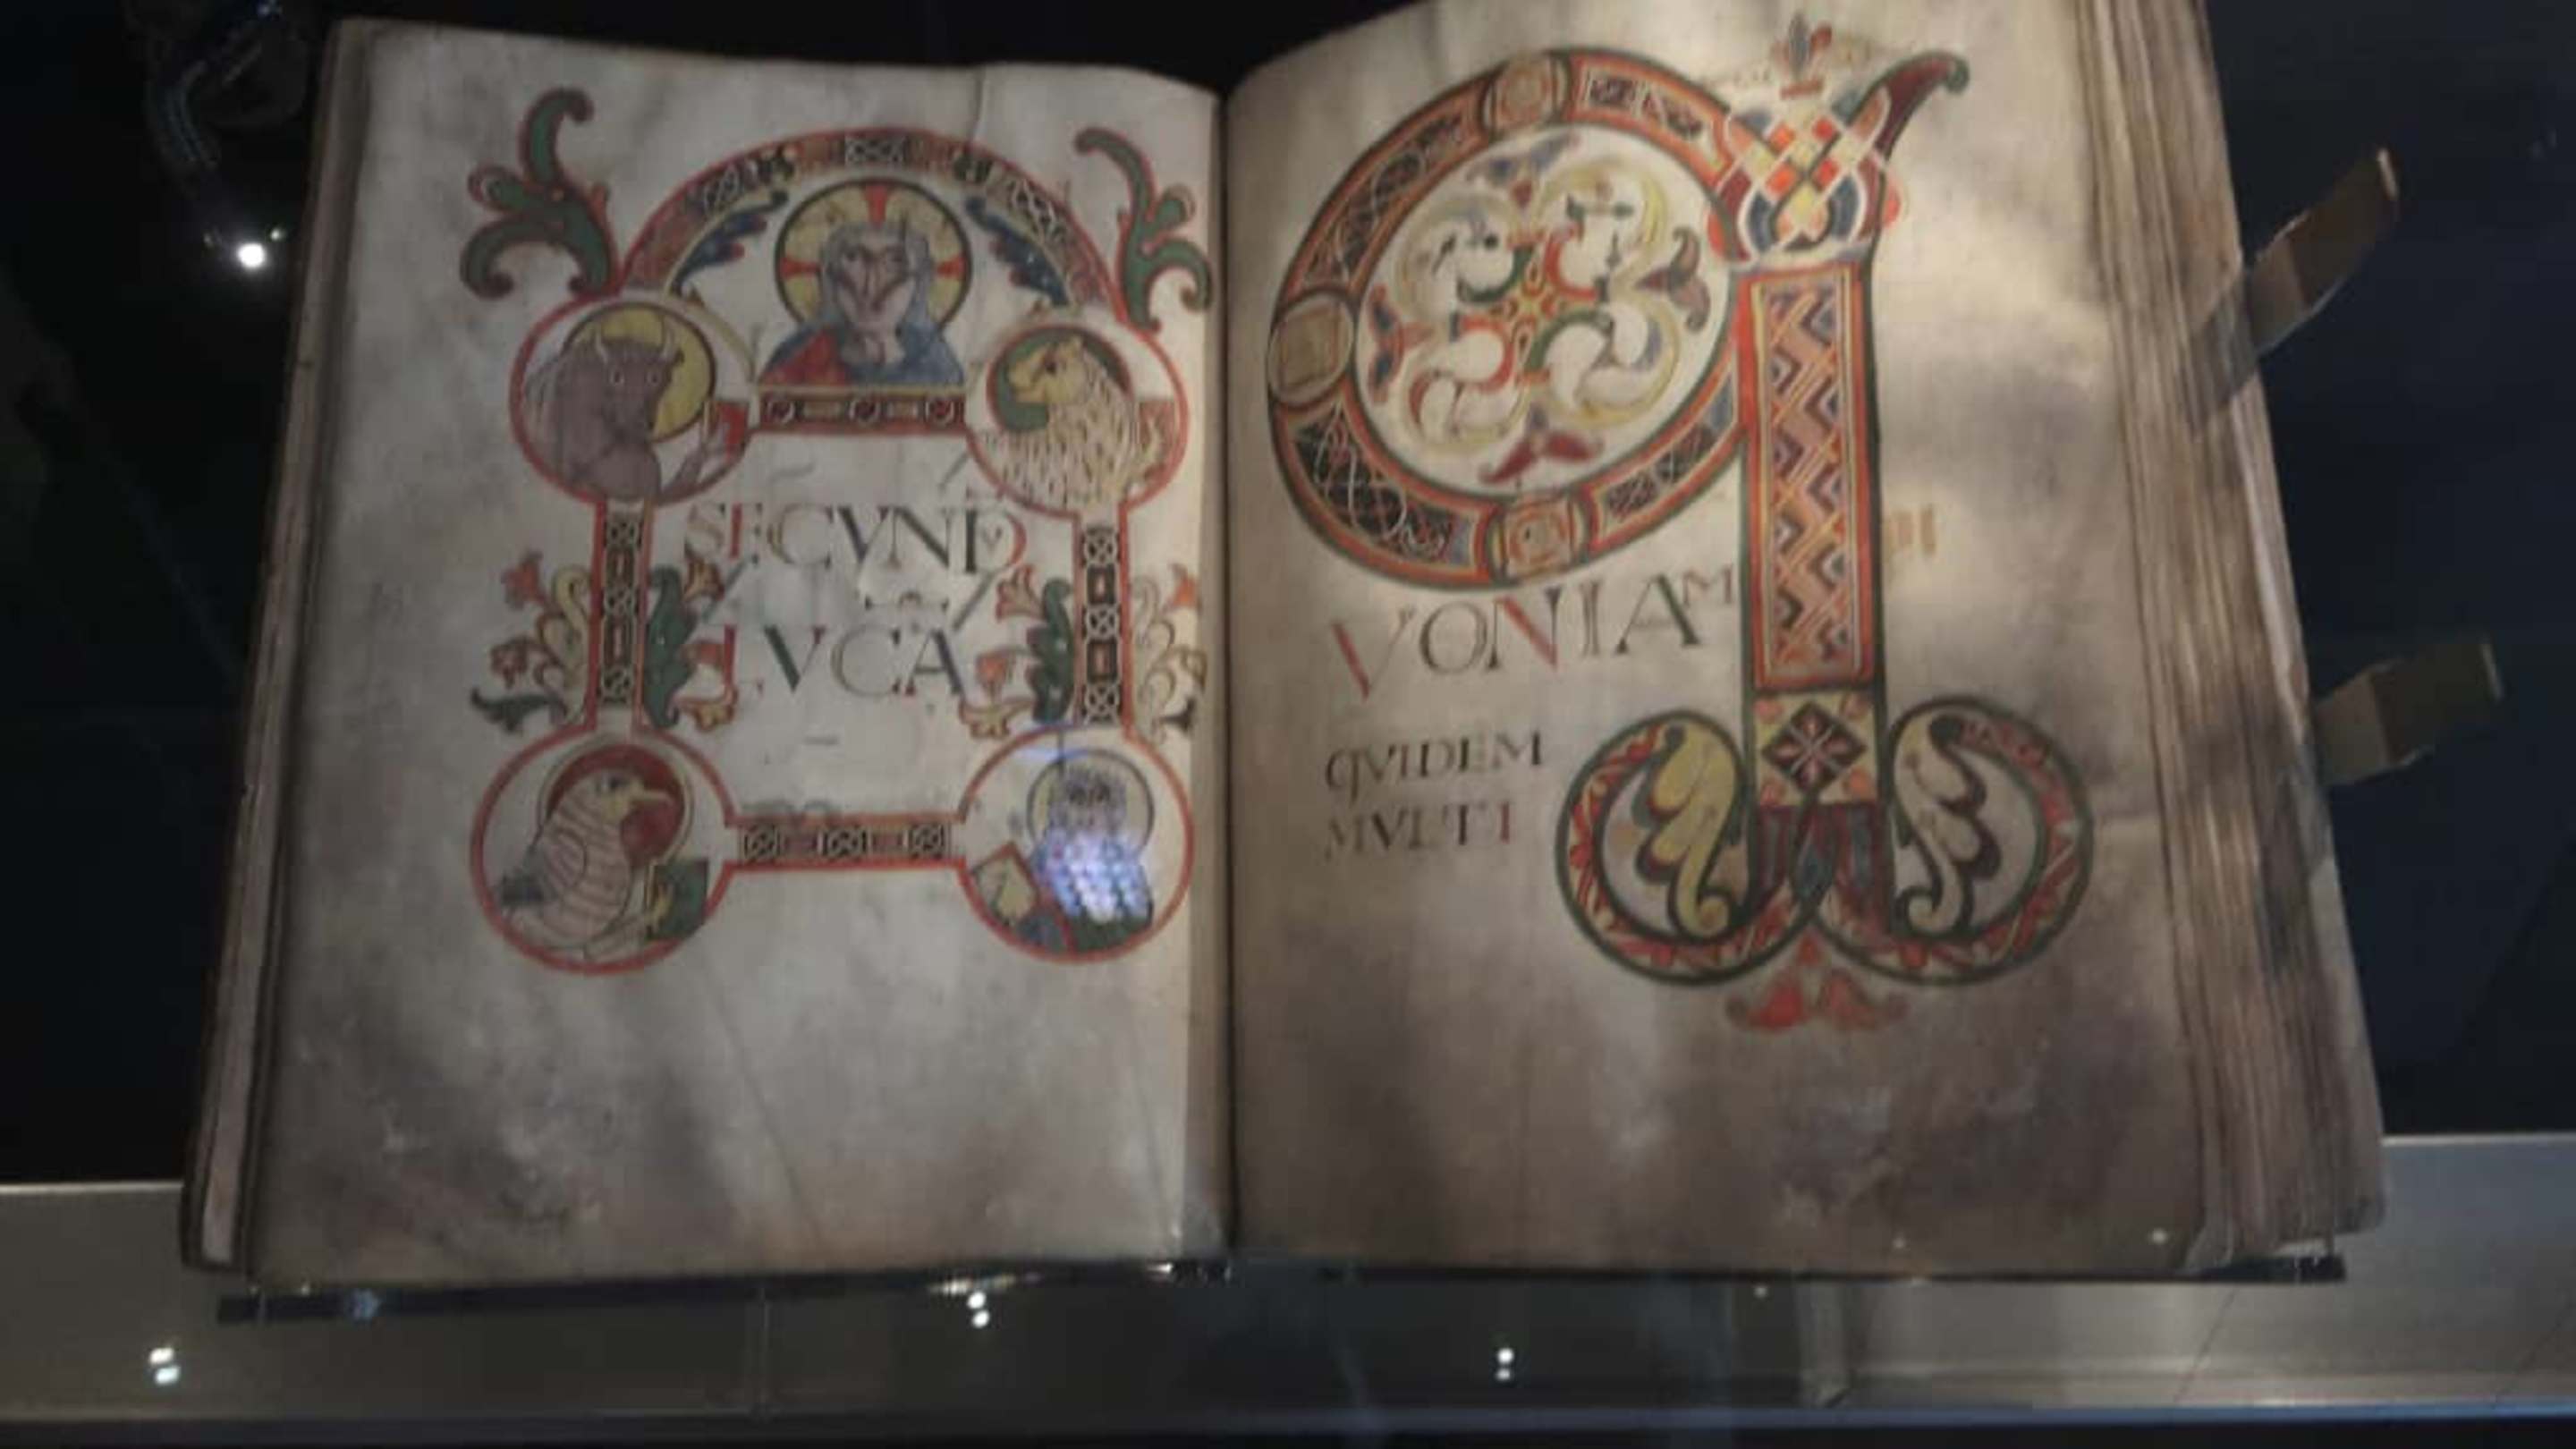 SECVND
LVCA
qVONIAM
QVIDEM
MVLTI